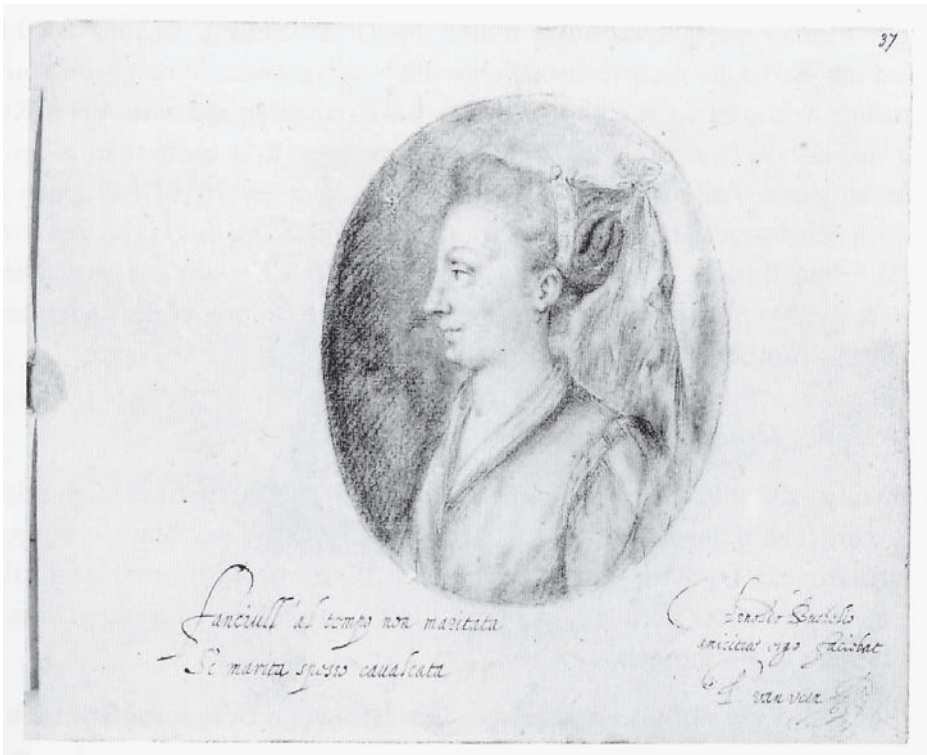 37
Fanciull' al tempo non maritata
Se marita spesso cavalcata
Arnoldo Buchelio
amicitiae ergo faciebat
van veen